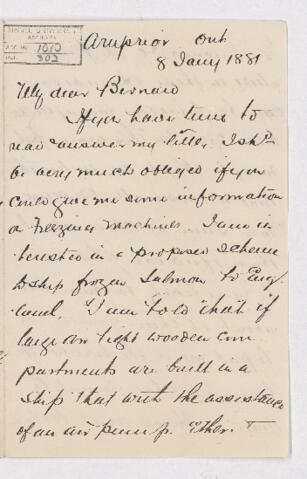 McGILL UNIVERSITY
ARCHIVES
ACC. NO. 1010
REF. 302
Arnprior Ont
8 Jany 1881
My dear Bernard
If you have time to
read & answer my letter I shd
be very much obliged if you
could give me some information
on Freezing Machines. I am in
terested in a proposed scheme
to ship frozen Salmon to Eng
land. I am told that if
large air tight wooden com
partments are built in a
ship that with the assistance
of an air pump. Ether.